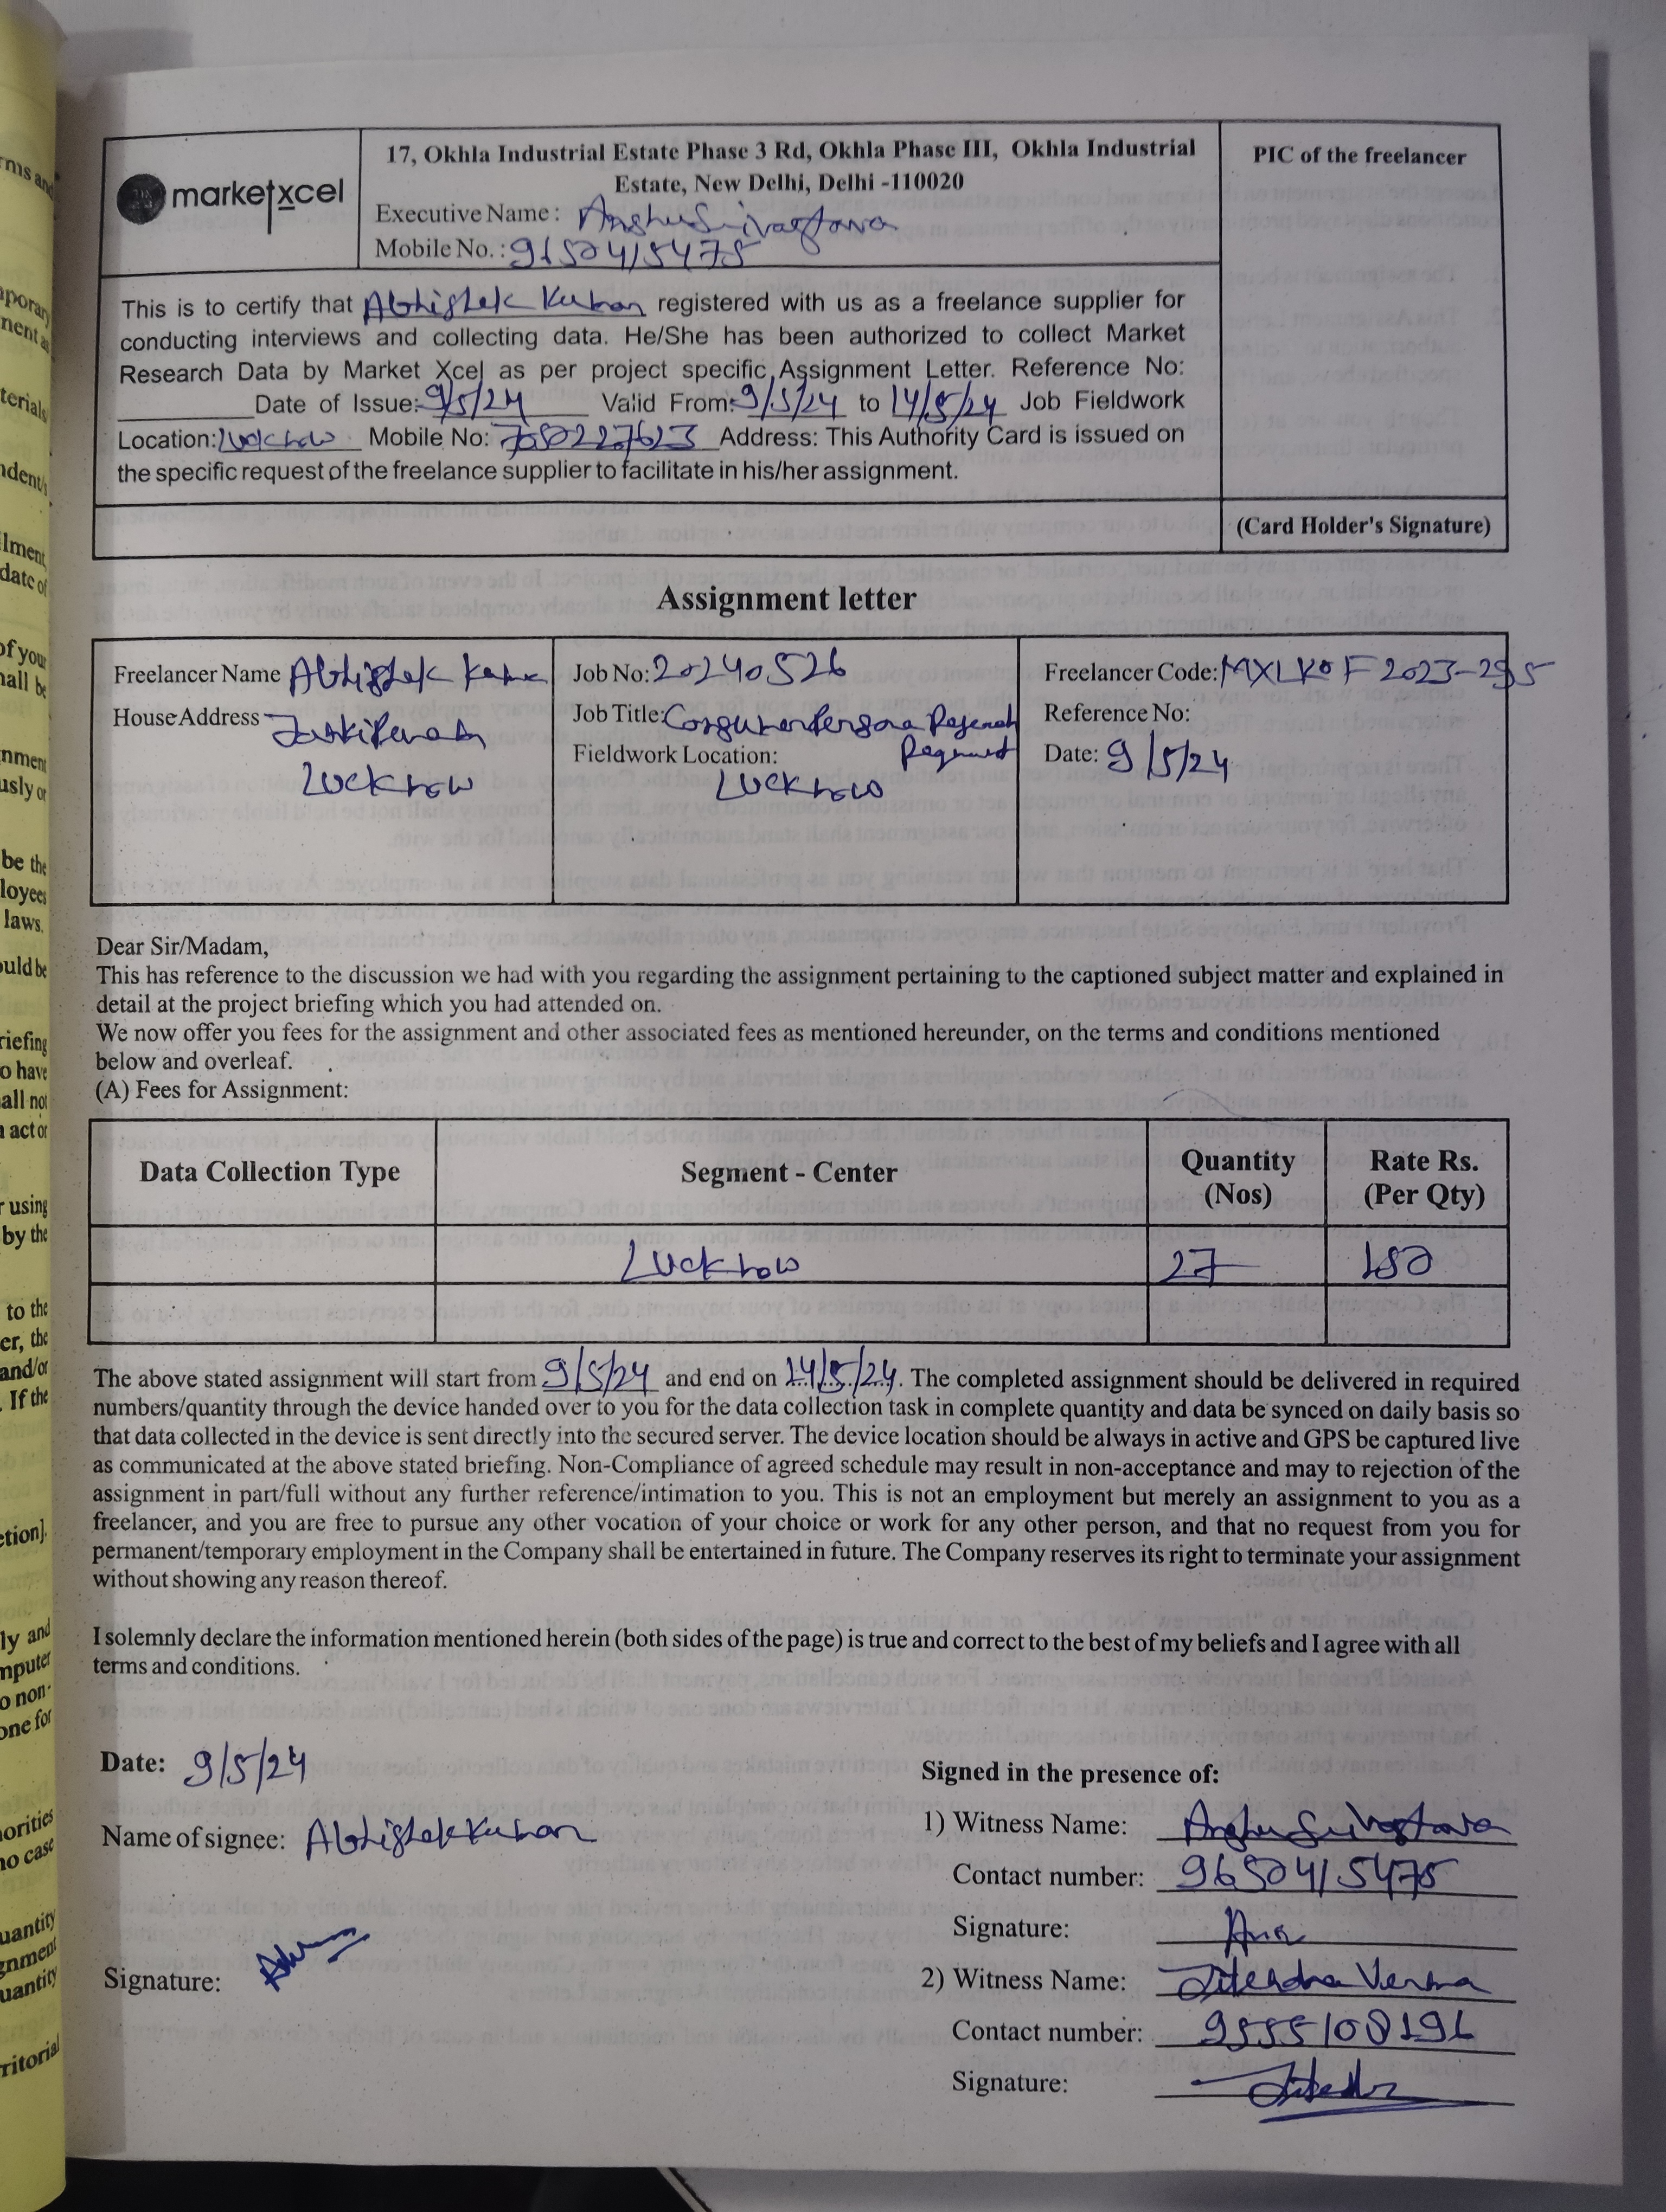 marketxcel
17, Okhla Industrial Estate Phase 3 Rd, Okhla Phase III, Okhla Industrial
Estate, New Delhi, Delhi -110020
Executive Name : Anshu Srivastava
Mobile No. : 9650415475
PIC of the freelancer
This is to certify that Abhishek Kumar registered with us as a freelance supplier for
conducting interviews and collecting data. He/She has been authorized to collect Market
Research Data by Market Xcel as per project specific Assignment Letter. Reference No:
Date of Issue: 9/5/24 Valid From: 9/5/24 to 14/5/24 Job Fieldwork
Location: Lucknow Mobile No: Address: This Authority Card is issued on
the specific request of the freelance supplier to facilitate in his/her assignment.
(Card Holder's Signature)
Assignment letter
Freelancer Name Abhishek Kumar
House Address
Lucknow
Job No: 20240526
Job Title: Consumer Persona Research
Fieldwork Location:
Lucknow
Freelancer Code: MXLKOF2023-295
Reference No:
Date: 9/5/24
Dear Sir/Madam,
This has reference to the discussion we had with you regarding the assignment pertaining to the captioned subject matter and explained in
detail at the project briefing which you had attended on.
We now offer you fees for the assignment and other associated fees as mentioned hereunder, on the terms and conditions mentioned
below and overleaf.
(A) Fees for Assignment:
Data Collection Type Segment - Center Quantity (Nos) Rate Rs. (Per Qty)
Lucknow 27 150
The above stated assignment will start from 9/5/24 and end on 14/5/24. The completed assignment should be delivered in required
numbers/quantity through the device handed over to you for the data collection task in complete quantity and data be synced on daily basis so
that data collected in the device is sent directly into the secured server. The device location should be always in active and GPS be captured live
as communicated at the above stated briefing. Non-Compliance of agreed schedule may result in non-acceptance and may to rejection of the
assignment in part/full without any further reference/intimation to you. This is not an employment but merely an assignment to you as a
freelancer, and you are free to pursue any other vocation of your choice or work for any other person, and that no request from you for
permanent/temporary employment in the Company shall be entertained in future. The Company reserves its right to terminate your assignment
without showing any reason thereof.
I solemnly declare the information mentioned herein (both sides of the page) is true and correct to the best of my beliefs and I agree with all
terms and conditions.
Date: 9/5/24
Name of signee: Abhishek Kumar
Signature:
Signed in the presence of:
1) Witness Name: Anshu Srivastava
Contact number: 9650415475
Signature:
2) Witness Name: Jitendra Verma
Contact number: 9555108196
Signature: Jitendra